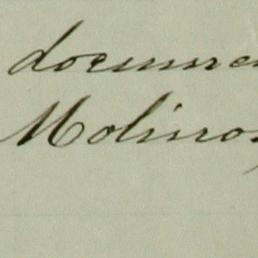 documen
Molinos,